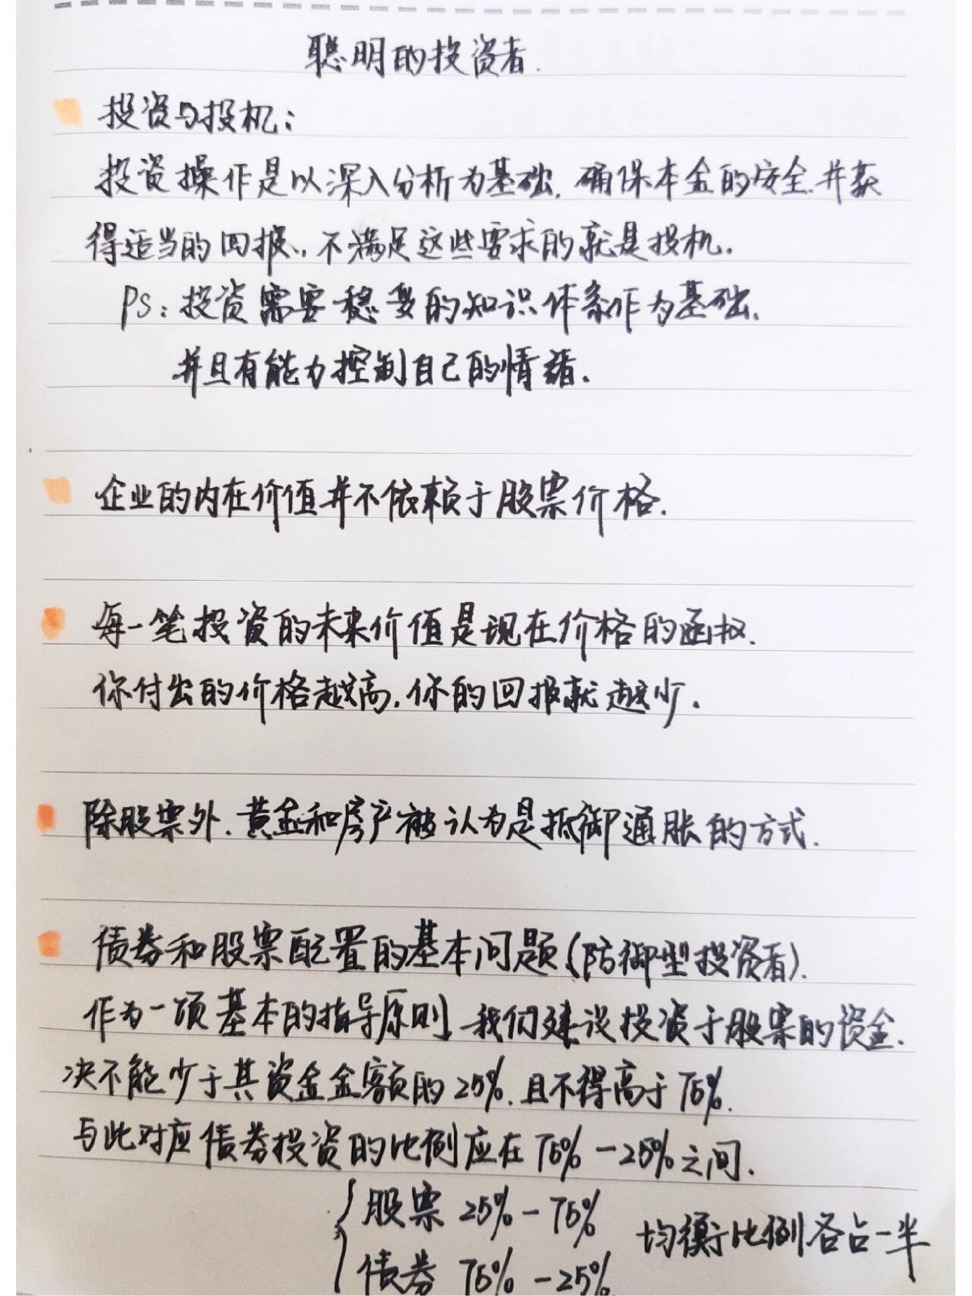 聪明的投资者.
投资与投机：
投资操作是以深入分析为基础，确保本金的安全，并获
得适当的回报，不满足这些要求的就是投机.
PS：投资需要稳妥的知识体系作为基础.
并且有能力控制自己的情绪.
企业的内在价值并不依赖于股票价格.
每一笔投资的未来价值是现在价格的函数.
你付出的价格越高，你的回报就越少.
除股票外，黄金和房产被认为是抵御通胀的方式.
债券和股票配置的基本问题（防御型投资者）.
作为一项基本的指导原则，我们建议投资于股票的资金.
决不能少于其资金金额的25%，且不得高于75%.
与此对应债券投资的比例应在75%－25%之间.
股票 25%－75%
均衡比例各占一半
债券 75%－25%